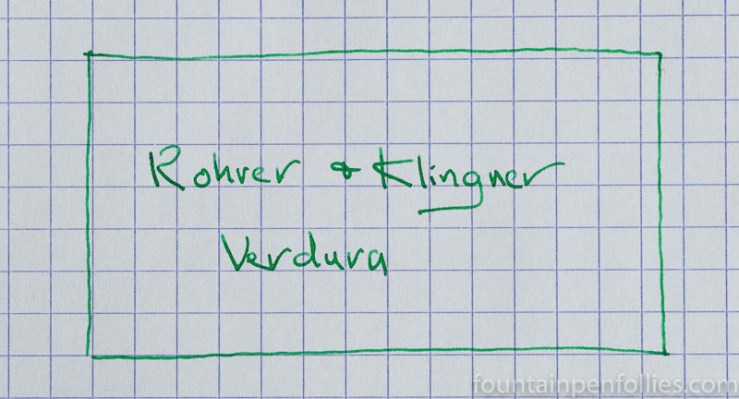 Rohrer & Klingner
Verdura
fountainpenfollies.com